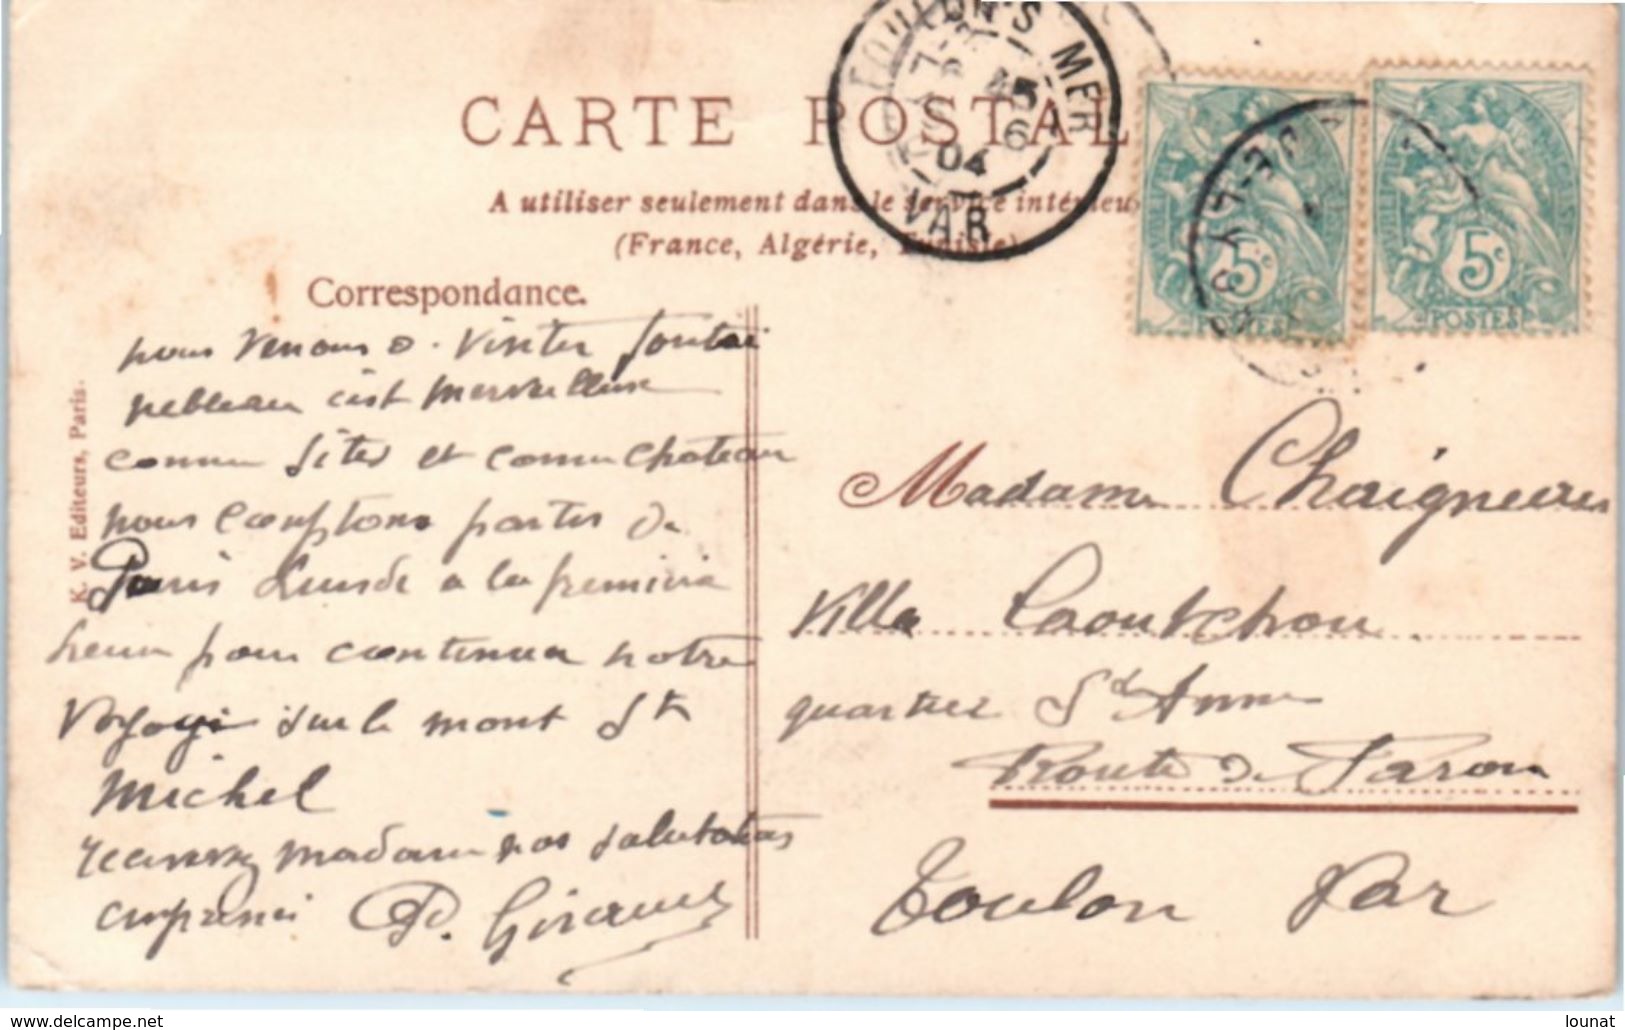 CARTE POSTALE
A utiliser seulement dans le service intérieur
(France, Algérie, Tunisie)
TOULON-S-MER
7-
15
6
04
VAR
DE-LY
5c
POSTES
5c
POSTES
Correspondance.
K. V. Editeurs, Paris.
nous venons d. visiter fontai
nebleau c'est merveilleux
comme sites et comme chateau
nous comptons partir de
Paris Lundi a la premiere
heure pour continuer notre
voyage sur le mont St
Michel
recevez madame nos salutations
empressées P. Giraud
Madame Chaigneau
villa Caoutchou
quartier Ste Anne
Route de Faron
Toulon Var
www.delcampe.net
lounat